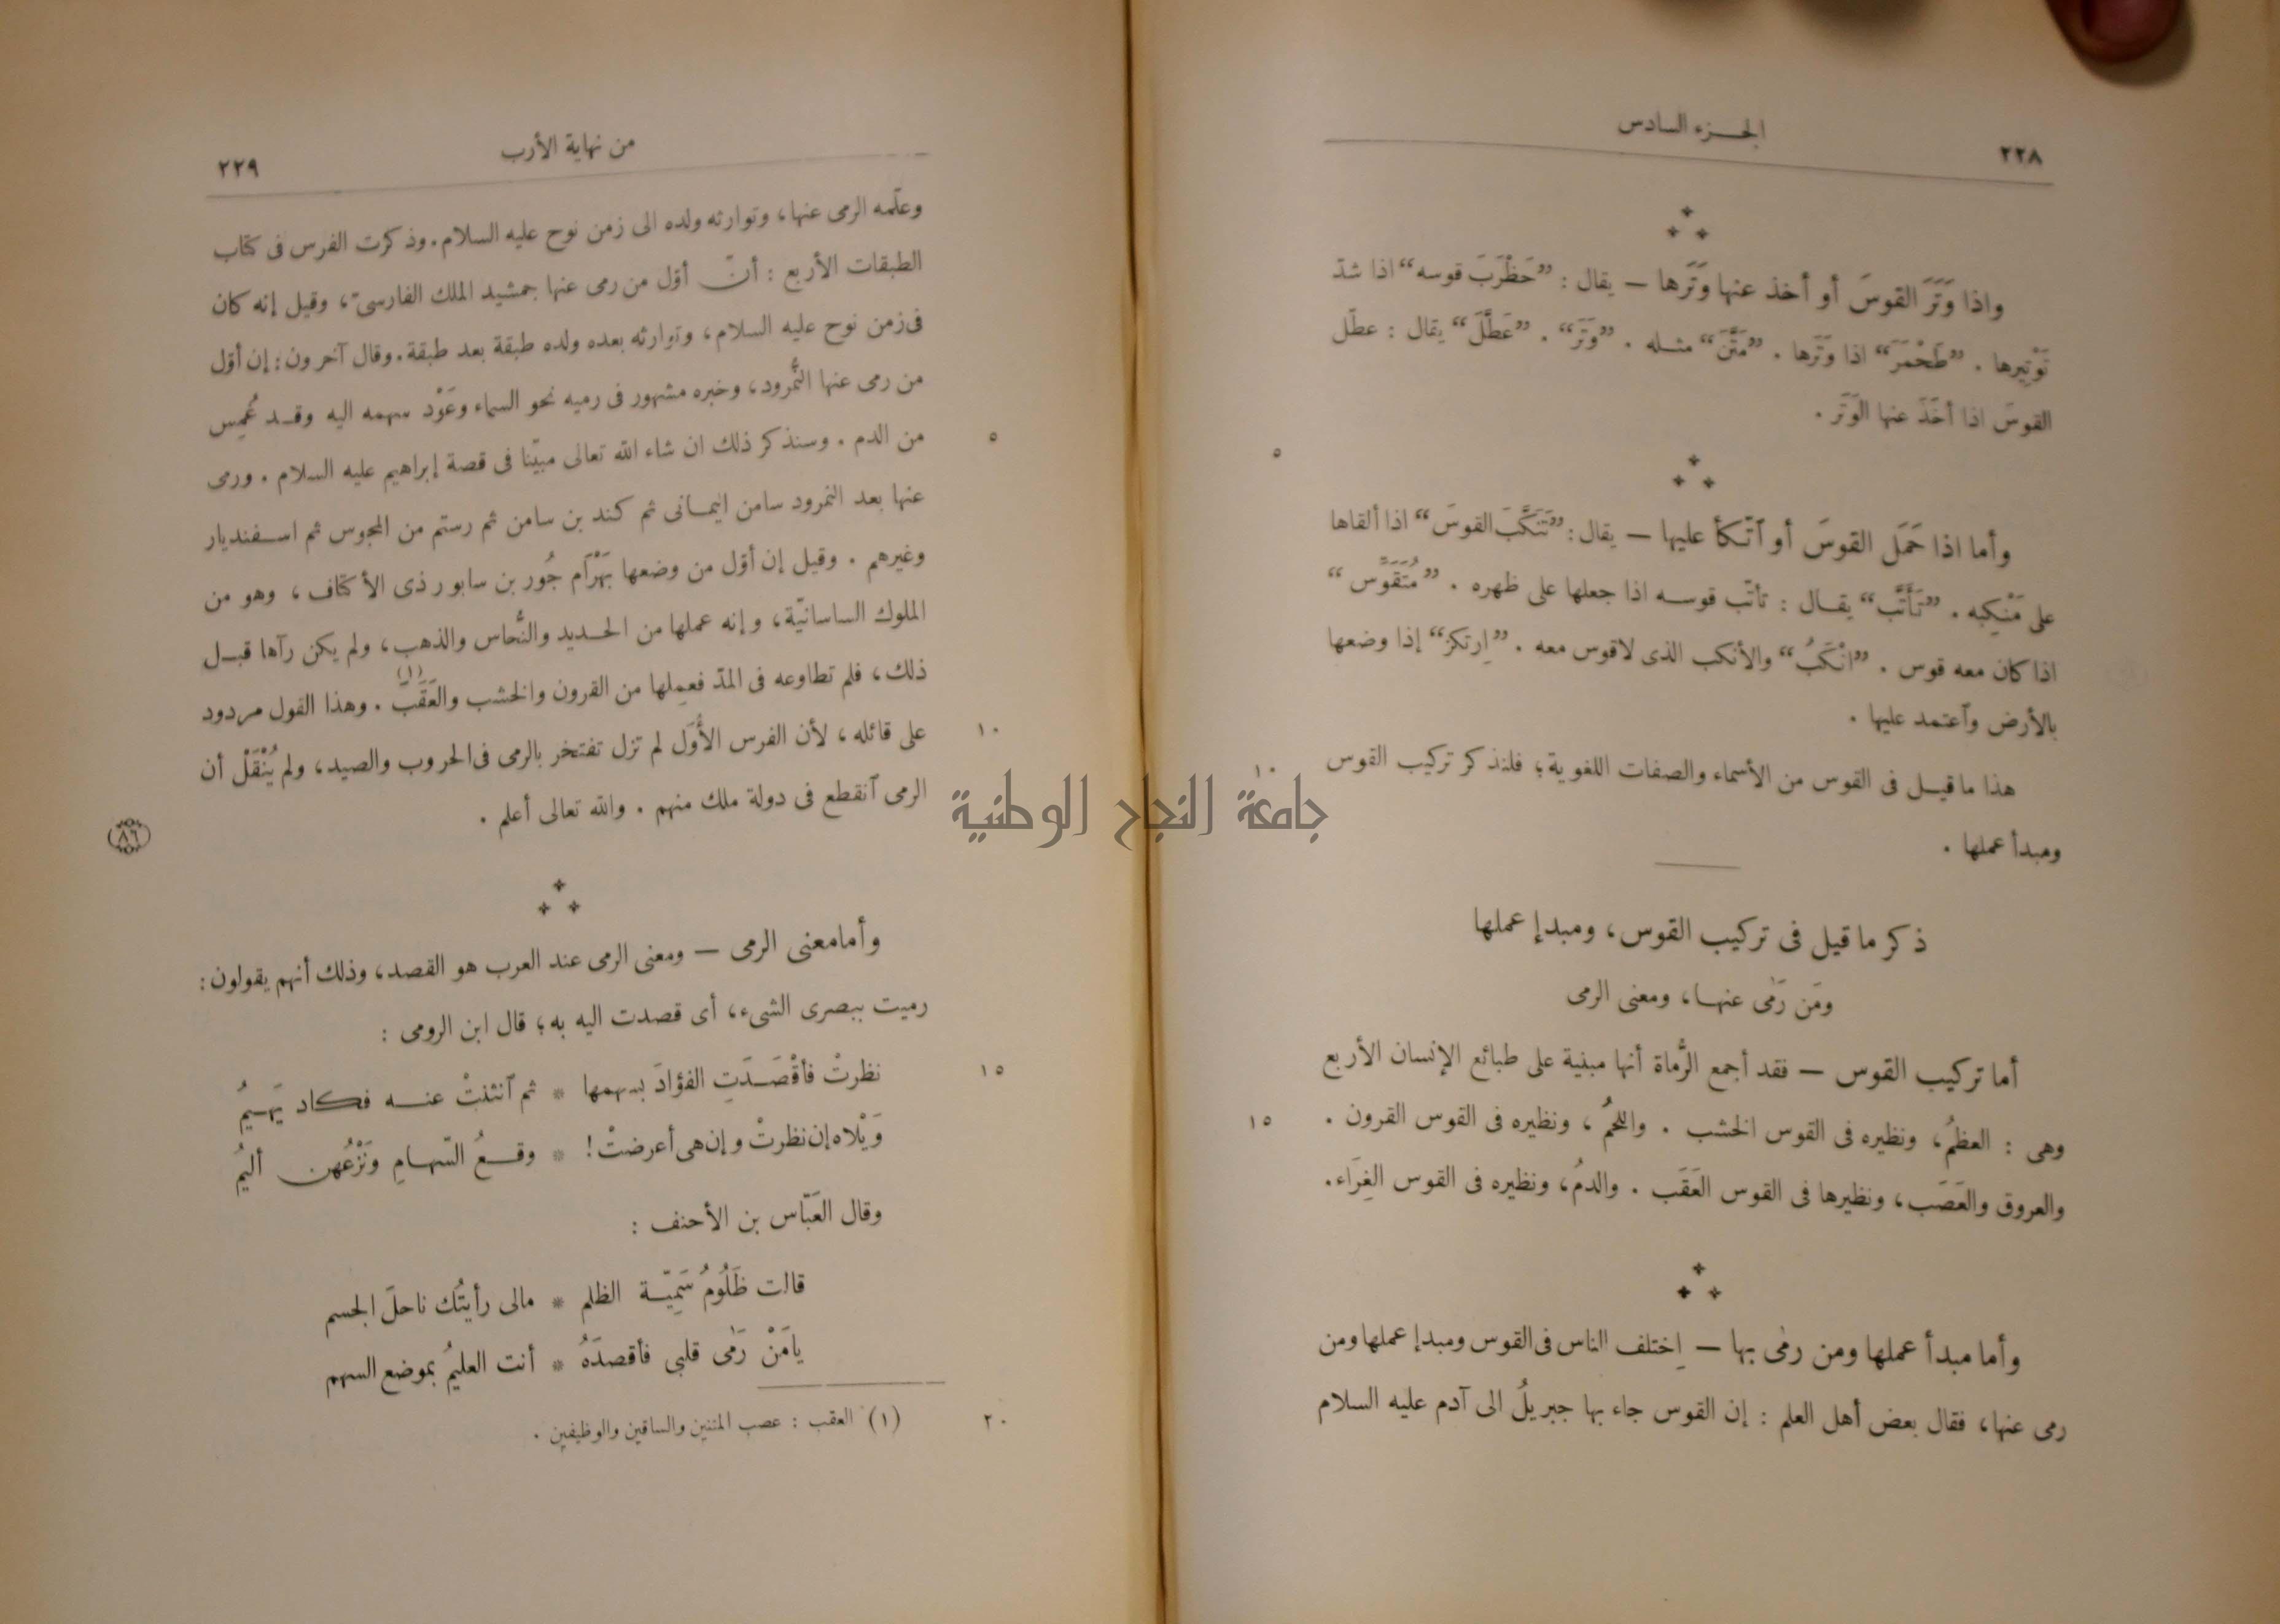 ٢٢٨
الجزء السادس
واذا وَتَرَ القوسَ أو أخذ عنها وَتَرَها — يقال : "حَظْرَبَ قوسه" اذا شدّ
تَوْتِيرها . "طَحْمَرَ" اذا وَتَرَها . "مَتَّنَ" مثله . "وَتَرَ" . "عَطَّلَ" يقال : عطّل
القوسَ اذا أخَذَ عنها الوَتَر .
٥
وأما اذا حَمَلَ القوسَ أو ٱتّكأ عليها — يقال : "تَنَكَّبَ القوسَ" اذا ألقاها
على مَنْكِبه . "تَأَتَّب" يقال : تأتّب قوسه اذا جعلها على ظهره . "مُتَقَوِّس"
اذا كان معه قوس . "انْكَبُ" والأنكب الذى لا قوس معه . "اِرتكز" إذا وضعها
بالأرض وٱعتمد عليها .
هذا ما قيل فى القوس من الأسماء والصفات اللغوية؛ فلنذكر تركيب القوس
١٠
ومبدأ عملها .
ذكر ما قيل فى تركيب القوس، ومبدإ عملها
ومَن رَمٰى عنها، ومعنى الرمى
أما تركيب القوس — فقد أجمع الرُّماة أنها مبنية على طبائع الإنسان الأربع
وهى : العظمُ، ونظيره فى القوس الخشب . واللحمُ، ونظيره فى القوس القرون .
١٥
والعروق والعَصَب، ونظيرها فى القوس العَقَب . والدمُ، ونظيره فى القوس الغِرَاء.
وأما مبدأ عملها ومن رمٰى بها — اِختلف الناس فى القوس ومبدإ عملها ومن
رمى عنها، فقال بعض أهل العلم : إن القوس جاء بها جبريلُ الى آدم عليه السلام
من نهاية الأرب
٢٢٩
وعلّمه الرمى عنها، وتوارثه ولده الى زمن نوح عليه السلام. وذكرت الفرس فى كتاب
الطبقات الأربع : أنّ أوّل من رمى عنها جمشيد الملك الفارسىّ، وقيل إنه كان
فى زمن نوح عليه السلام، وتوارثه بعده ولده طبقة بعد طبقة. وقال آخرون: إن أوّل
من رمى عنها النُّمرود، وخبره مشهور فى رميه نحو السماء وعَوْد سهمه اليه وقد غُمِس
من الدم . وسنذكر ذلك ان شاء الله تعالى مبيّنا فى قصة إبراهيم عليه السلام . ورمى
٥
عنها بعد النمرود سامن اليمانى ثم كند بن سامن ثم رستم من المجوس ثم اسفنديار
وغيرهم . وقيل إن أوّل من وضعها بَهْرَام جُور بن سابور ذى الأكتاف، وهو من
الملوك الساسانيّة، وإنه عملها من الحديد والنُّحاس والذهب، ولم يكن رآها قبل
ذلك، فلم تطاوعه فى المدّ فعمِلها من القرون والخشب والعَقَب (١) . وهذا القول مردود
على قائله، لأن الفرس الأُوَل لم تزل تفتخر بالرمى فى الحروب والصيد، ولم يُنْقَلْ أن
١٠
الرمى ٱنقطع فى دولة ملك منهم . والله تعالى أعلم .
٨٦
وأما معنى الرمى — ومعنى الرمى عند العرب هو القصد، وذلك أنهم يقولون:
رميت ببصرى الشىء، أى قصدت اليه به؛ قال ابن الرومى :
نظرتْ فأقْصَدَتِ الفؤادَ بسهمها * ثم ٱنثنتْ عنه فكاد يَهيمُ
١٥
وَيْلاه إن نظرتْ وإن هى أعرضتْ! * وقعُ السّهامِ ونَزْعُهن أليمُ
وقال العَبّاس بن الأحنف :
قالت ظَلُومُ سَمِيّة الظلم * مالى رأيتُك ناحلَ الجسم
يا مَنْ رَمٰى قلبى فأقصدَهُ * أنت العليمُ بموضع السهم
(١) العقب : عصب المتنين والساقين والوظيفين .
٢٠
جامعة النجاح الوطنية